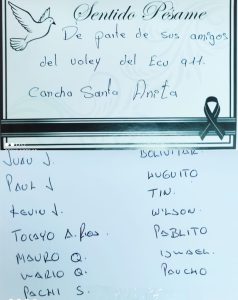 Sentido Pésame
De parte de sus amigos
del voley del Ecu 911.
Cancha Santa Anita
JUAN J.
PAUL J
KEVIN J.
TOCAYO A. Ros
MAURO Q.
WARIO Q.
PACHI S.
BOLIVITAR
HUGUITO
TIN.
WILSON.
PABLITO
ISMAEL
POUCHO